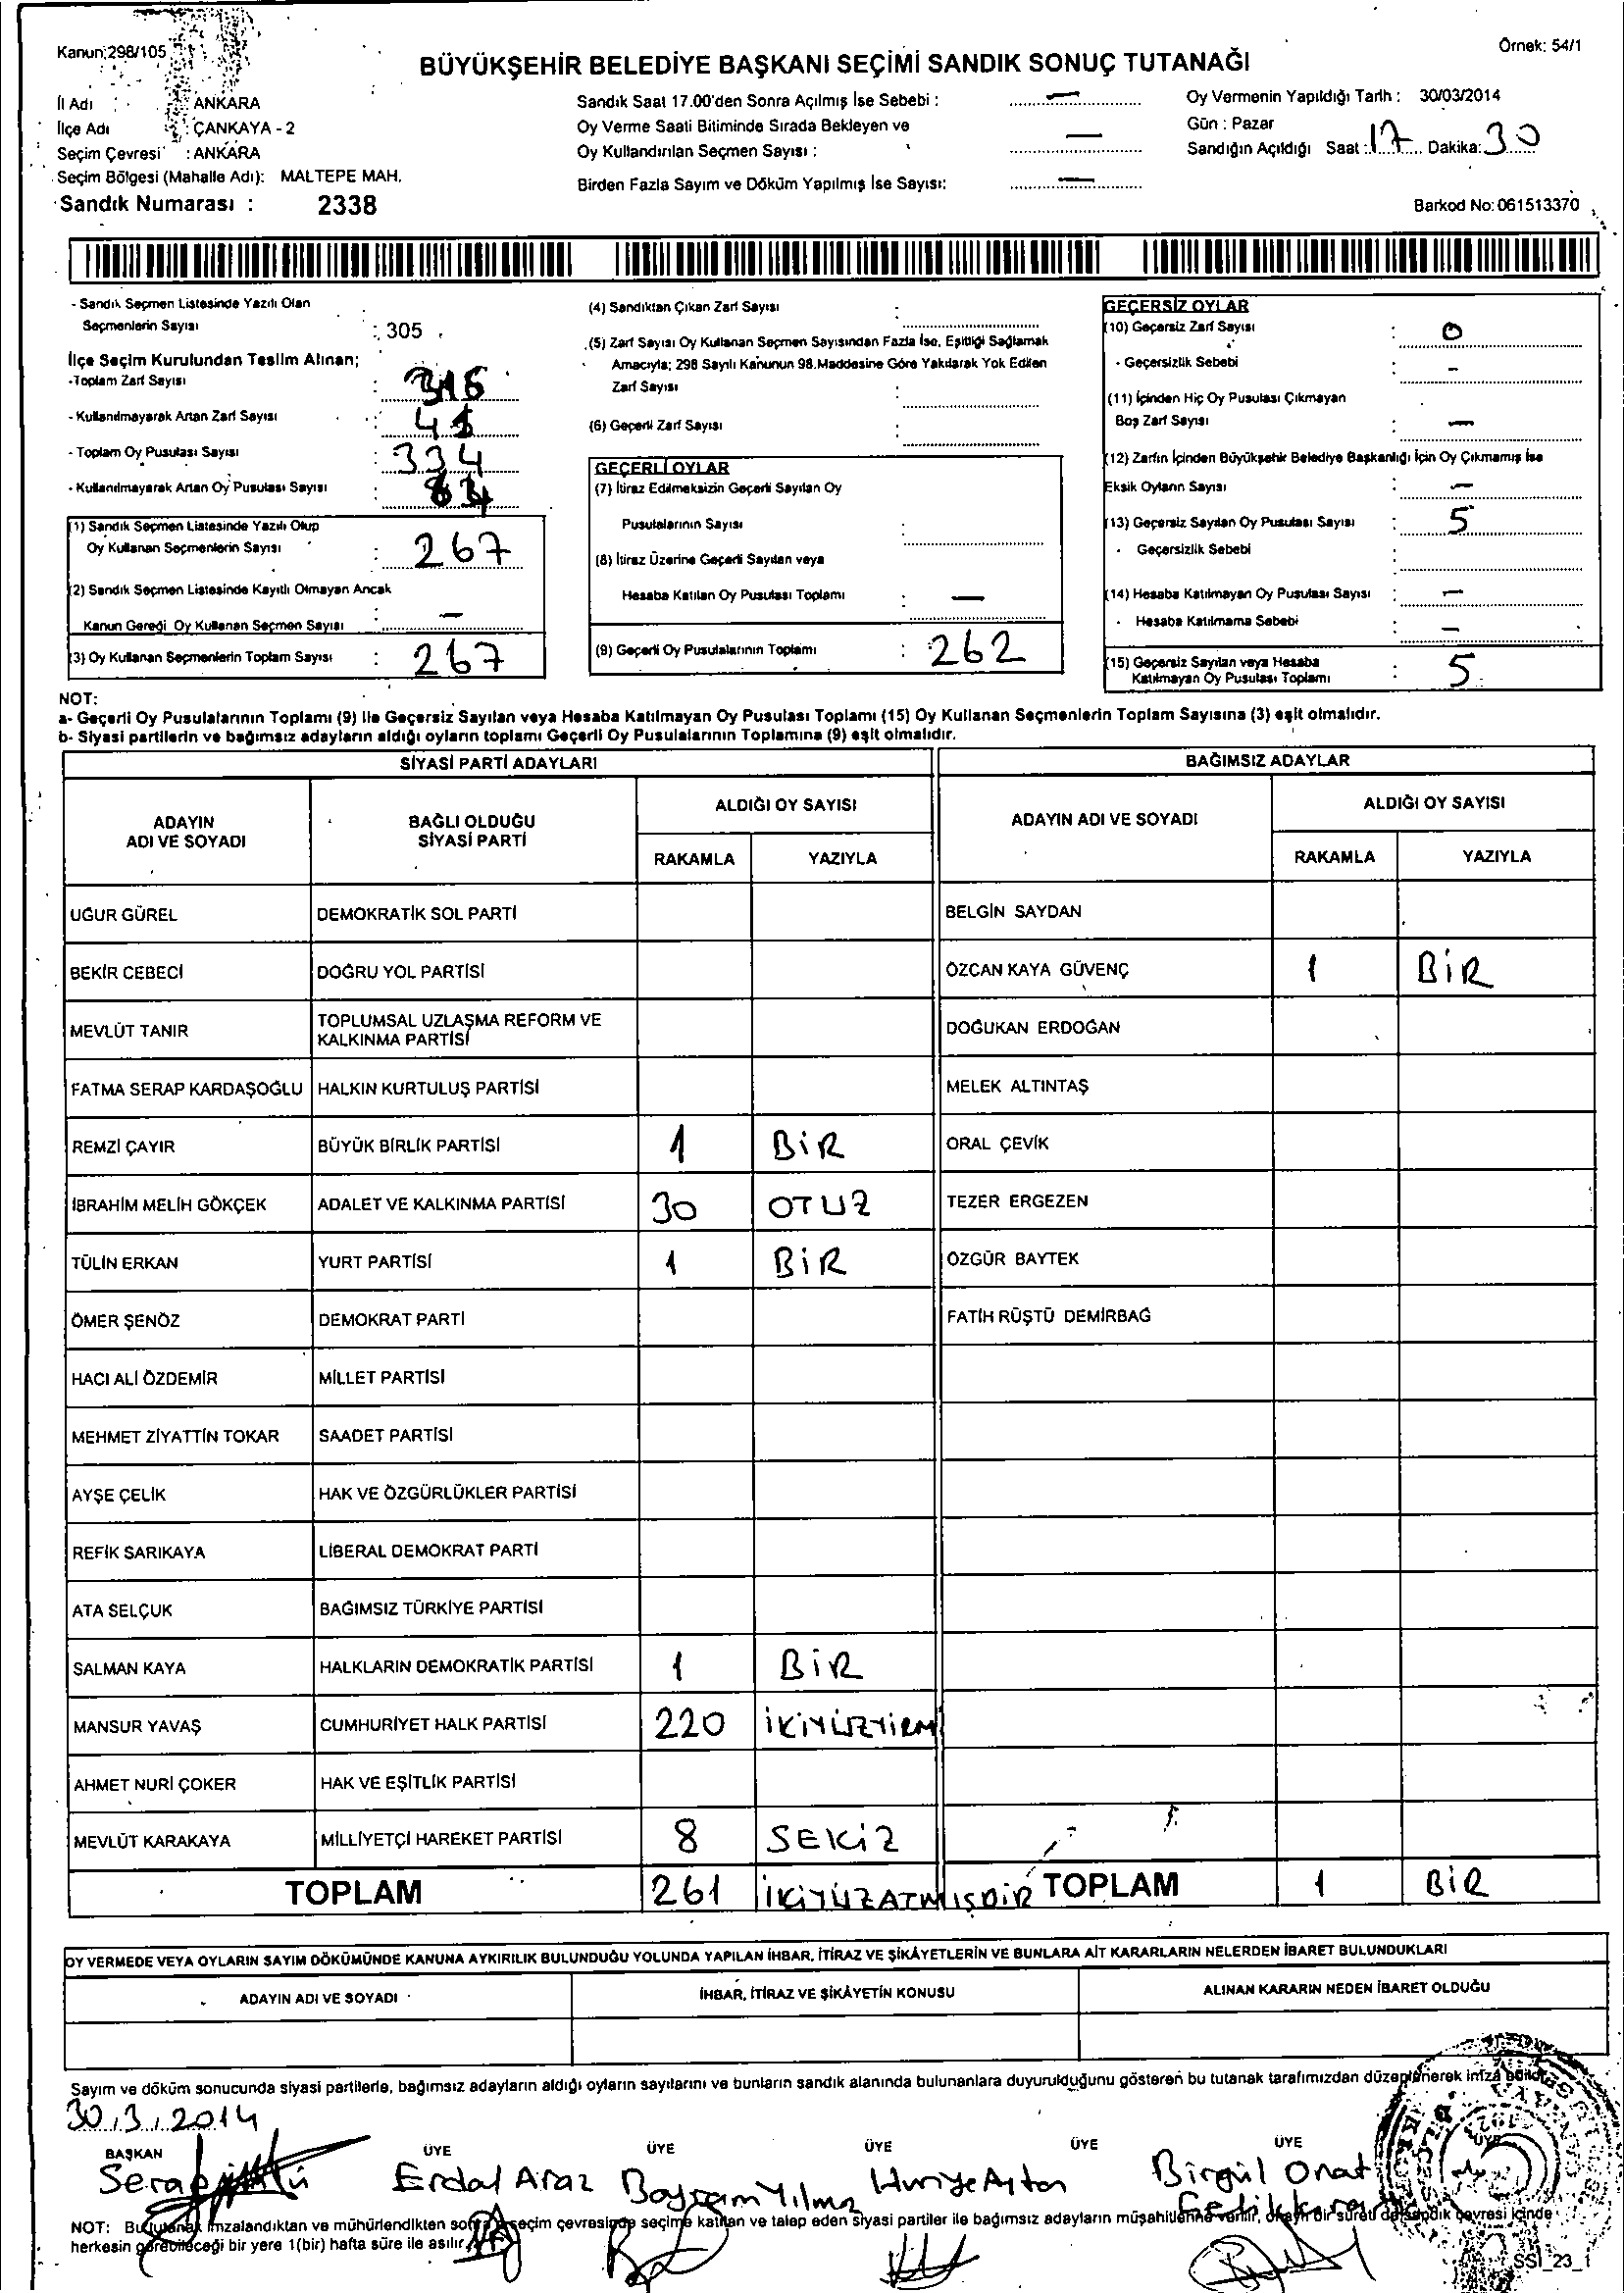 Kanun:298/105
Örnek: 54/1
BÜYÜKŞEHİR BELEDİYE BAŞKANI SEÇİMİ SANDIK SONUÇ TUTANAĞI
İl Adı : ANKARA
İlçe Adı : ÇANKAYA - 2
Seçim Çevresi : ANKARA
Seçim Bölgesi (Mahalle Adı): MALTEPE MAH.
Sandık Numarası : 2338
Sandık Saat 17.00'den Sonra Açılmış İse Sebebi : —
Oy Verme Saati Bitiminde Sırada Bekleyen ve
Oy Kullandırılan Seçmen Sayısı : —
Birden Fazla Sayım ve Döküm Yapılmış İse Sayısı: —
Oy Vermenin Yapıldığı Tarih : 30/03/2014
Gün : Pazar
Sandığın Açıldığı Saat : 17 Dakika: 30
Barkod No: 061513370
- Sandık Seçmen Listesinde Yazılı Olan
Seçmenlerin Sayısı : 305
İlçe Seçim Kurulundan Teslim Alınan;
-Toplam Zarf Sayısı :
- Kullanılmayarak Artan Zarf Sayısı :
- Toplam Oy Pusulası Sayısı : 334
- Kullanılmayarak Artan Oy Pusulası Sayısı :
(1) Sandık Seçmen Listesinde Yazılı Olup
Oy Kullanan Seçmenlerin Sayısı : 267
(2) Sandık Seçmen Listesinde Kayıtlı Olmayan Ancak
Kanun Gereği Oy Kullanan Seçmen Sayısı : —
(3) Oy Kullanan Seçmenlerin Toplam Sayısı : 267
(4) Sandıktan Çıkan Zarf Sayısı :
(5) Zarf Sayısı Oy Kullanan Seçmen Sayısından Fazla İse, Eşitliği Sağlamak
Amacıyla; 298 Sayılı Kanunun 98.Maddesine Göre Yakılarak Yok Edilen
Zarf Sayısı :
(6) Geçerli Zarf Sayısı :
GEÇERLİ OYLAR
(7) İtiraz Edilmeksizin Geçerli Sayılan Oy
Pusulalarının Sayısı :
(8) İtiraz Üzerine Geçerli Sayılan veya
Hesaba Katılan Oy Pusulası Toplamı : —
(9) Geçerli Oy Pusulalarının Toplamı : 262
GEÇERSİZ OYLAR
(10) Geçersiz Zarf Sayısı : 0
- Geçersizlik Sebebi : -
(11) İçinden Hiç Oy Pusulası Çıkmayan
Boş Zarf Sayısı : —
(12) Zarfın İçinden Büyükşehir Belediye Başkanlığı İçin Oy Çıkmamış İse
Eksik Oyların Sayısı : —
(13) Geçersiz Sayılan Oy Pusulası Sayısı : 5
- Geçersizlik Sebebi :
(14) Hesaba Katılmayan Oy Pusulası Sayısı : —
- Hesaba Katılmama Sebebi : —
(15) Geçersiz Sayılan veya Hesaba
Katılmayan Oy Pusulası Toplamı : 5
NOT:
a- Geçerli Oy Pusulalarının Toplamı (9) ile Geçersiz Sayılan veya Hesaba Katılmayan Oy Pusulası Toplamı (15) Oy Kullanan Seçmenlerin Toplam Sayısına (3) eşit olmalıdır.
b- Siyasi partilerin ve bağımsız adayların aldığı oyların toplamı Geçerli Oy Pusulalarının Toplamına (9) eşit olmalıdır.
SİYASİ PARTİ ADAYLARI
ADAYIN ADI VE SOYADI BAĞLI OLDUĞU SİYASİ PARTİ ALDIĞI OY SAYISI
RAKAMLA YAZIYLA
UĞUR GÜREL DEMOKRATİK SOL PARTİ
BEKİR CEBECİ DOĞRU YOL PARTİSİ
MEVLÜT TANIR TOPLUMSAL UZLAŞMA REFORM VE KALKINMA PARTİSİ
FATMA SERAP KARDAŞOĞLU HALKIN KURTULUŞ PARTİSİ
REMZİ ÇAYIR BÜYÜK BİRLİK PARTİSİ 1 BİR
İBRAHİM MELİH GÖKÇEK ADALET VE KALKINMA PARTİSİ 30 OTUZ
TÜLİN ERKAN YURT PARTİSİ 1 BİR
ÖMER ŞENÖZ DEMOKRAT PARTİ
HACI ALİ ÖZDEMİR MİLLET PARTİSİ
MEHMET ZİYATTİN TOKAR SAADET PARTİSİ
AYŞE ÇELİK HAK VE ÖZGÜRLÜKLER PARTİSİ
REFİK SARIKAYA LİBERAL DEMOKRAT PARTİ
ATA SELÇUK BAĞIMSIZ TÜRKİYE PARTİSİ
SALMAN KAYA HALKLARIN DEMOKRATİK PARTİSİ 1 BİR
MANSUR YAVAŞ CUMHURİYET HALK PARTİSİ 220 İKİYÜZYİRMİ
AHMET NURİ ÇOKER HAK VE EŞİTLİK PARTİSİ
MEVLÜT KARAKAYA MİLLİYETÇİ HAREKET PARTİSİ 8 SEKİZ
TOPLAM 261 İKİYÜZATMIŞDİR
BAĞIMSIZ ADAYLAR
ADAYIN ADI VE SOYADI ALDIĞI OY SAYISI
RAKAMLA YAZIYLA
BELGİN SAYDAN
ÖZCAN KAYA GÜVENÇ 1 BİR
DOĞUKAN ERDOĞAN
MELEK ALTINTAŞ
ORAL ÇEVİK
TEZER ERGEZEN
ÖZGÜR BAYTEK
FATİH RÜŞTÜ DEMİRBAĞ
TOPLAM 1 BİR
OY VERMEDE VEYA OYLARIN SAYIM DÖKÜMÜNDE KANUNA AYKIRILIK BULUNDUĞU YOLUNDA YAPILAN İHBAR, İTİRAZ VE ŞİKÂYETLERİN VE BUNLARA AİT KARARLARIN NELERDEN İBARET BULUNDUKLARI
ADAYIN ADI VE SOYADI İHBAR, İTİRAZ VE ŞİKÂYETİN KONUSU ALINAN KARARIN NEDEN İBARET OLDUĞU
Sayım ve döküm sonucunda siyasi partilerle, bağımsız adayların aldığı oyların sayılarını ve bunların sandık alanında bulunanlara duyurulduğunu gösteren bu tutanak tarafımızdan düzenlenerek imza edildi.
30.3.2014
BAŞKAN ÜYE ÜYE ÜYE ÜYE ÜYE ÜYE
Serap Erdal Araz Bayram Yılmaz Huriye Birgül Onat
NOT: Bu tutanak imzalandıktan ve mühürlendikten sonra seçim çevresinde seçime katılan ve talep eden siyasi partiler ile bağımsız adayların müşahitlerine verilir, onaylı bir sureti de sandık çevresi içinde
herkesin görebileceği bir yere 1(bir) hafta süre ile asılır.
SSİ_23_1